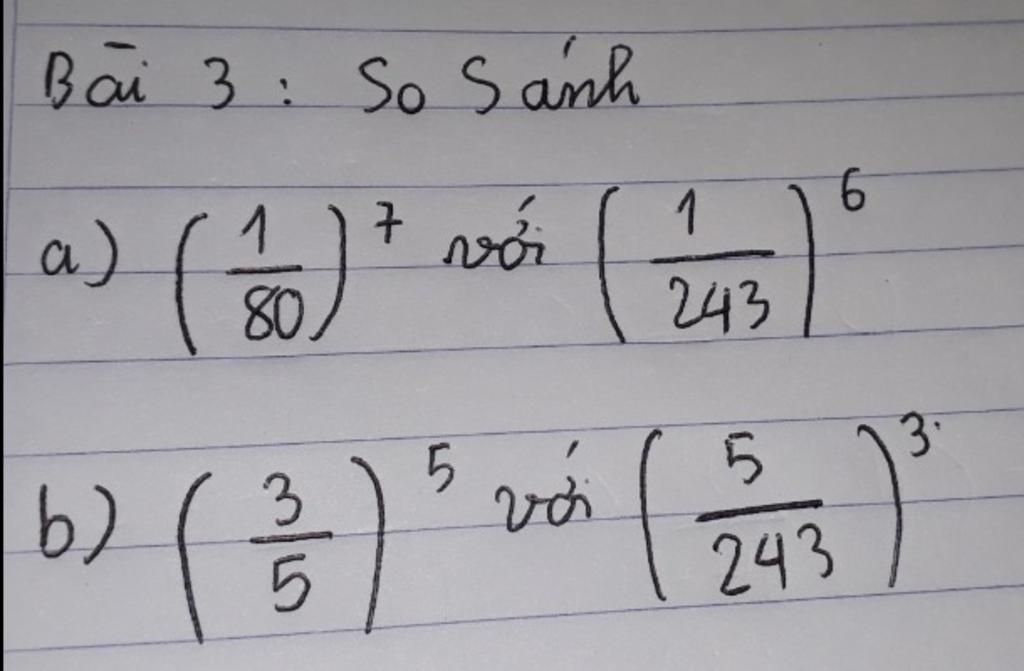 Bāi 3 : So Sánh
a) (1/80)^7 với (1/243)^6
b) (3/5)^5 với (5/243)^3.